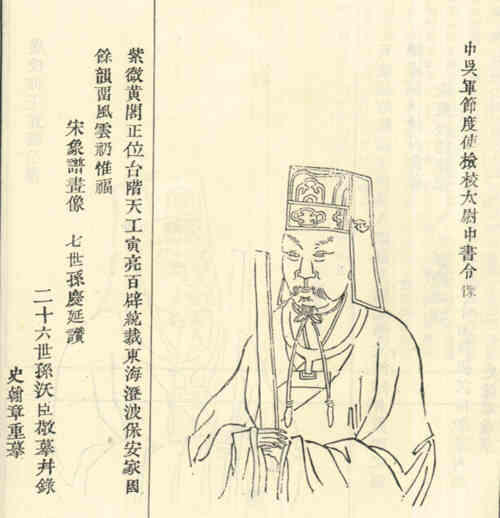 中吳軍節度使檢校太尉中書令
紫微黃閣正位台階天工寅亮百辟統載東海澄波保安家國
餘韻畱風雲礽惟福
宋象譜畫像 七世孫慶延讚
二十六世孫沃臣敬摹幷錄
史翰章重摹